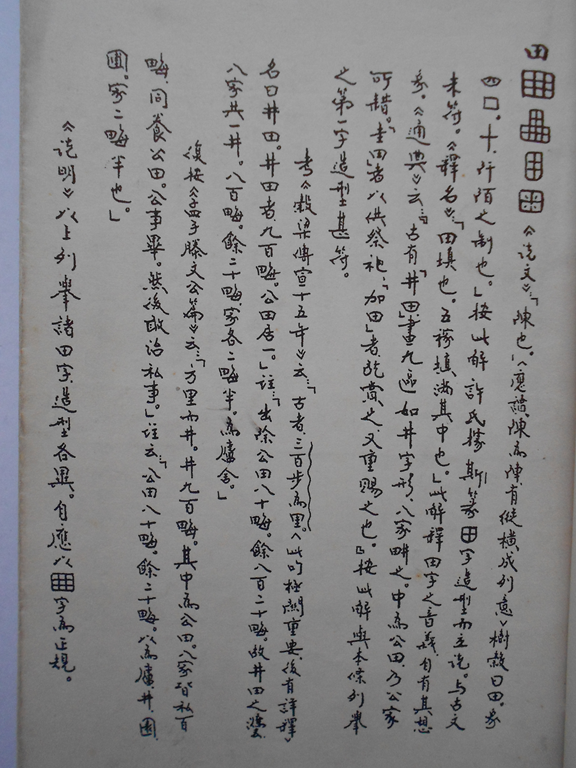 田 《說文》：「陳也。〈應讀陳為陣，有縱橫成列意〉樹穀曰田。象
四口。十、阡陌之制也。」按此解許氏據 斯篆田字造型而立說。与古文
未符。《釋名》：「田填也。五稼填滿其中也。」此解釋田字之音義，自有其想
象。《通典》云：「古有「井田」畫九區如井字形，八家畊之。中為公田乃公家
所藉。「圭田」者以供祭祀，「加田」者既賞之，又重賜之也。」按此解與本條列舉
之第一字造型甚符。
考《穀梁傳宣十五年》云：「古者三百步為里。〈此句極關重要後有詳釋〉
名曰井田。井田者九百畮。公田居一。」註：「出除公田八十畮。餘八百二十畮。故井田之法
八家共一井。八百畮。餘二十畮，家各二畮半。為廬舍。」
復按《孟子滕文公篇》云：「方里而井。井九百畮。其中為公田。八家皆私百
畮。同養公田。公事畢。然後敢治私事。」註云：「公田八十畮。餘二十畮。以為廬井園
圃。家二畮半也。」
《說明》以上列舉諸田字，造型各異。自應以 字為正規。